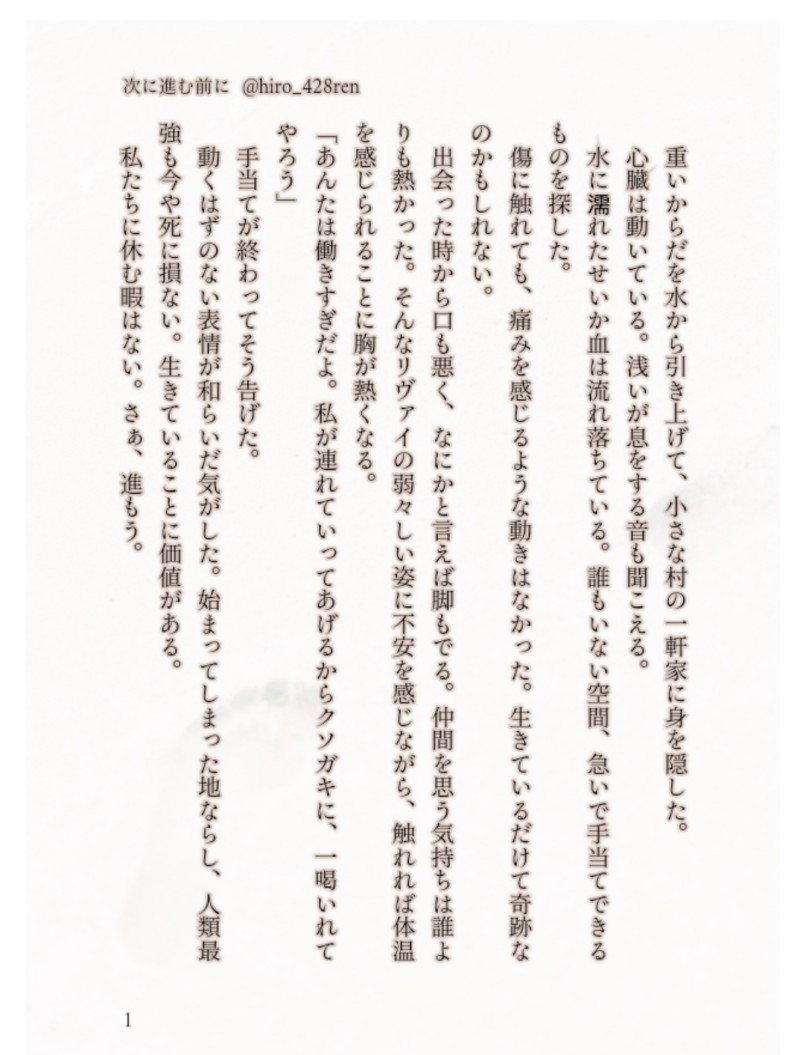 次に進む前に @hiro_428ren
重いからだを水から引き上げて、小さな村の一軒家に身を隠した。
心臓は動いている。浅いが息をする音も聞こえる。
水に濡れたせいか血は流れ落ちている。誰もいない空間、急いで手当てできる
ものを探した。
傷に触れても、痛みを感じるような動きはなかった。生きているだけて奇跡な
のかもしれない。
出会った時から口も悪く、なにかと言えば脚もでる。仲間を思う気持ちは誰よ
りも熱かった。そんなリヴァイの弱々しい姿に不安を感じながら、触れれば体温
を感じられることに胸が熱くなる。
「あんたは働きすぎだよ。私が連れていってあげるからクソガキに、一喝いれて
やろう」
手当てが終わってそう告げた。
動くはずのない表情が和らいだ気がした。始まってしまった地ならし、人類最
強も今や死に損ない。生きていることに価値がある。
私たちに休む暇はない。さぁ、進もう。
1